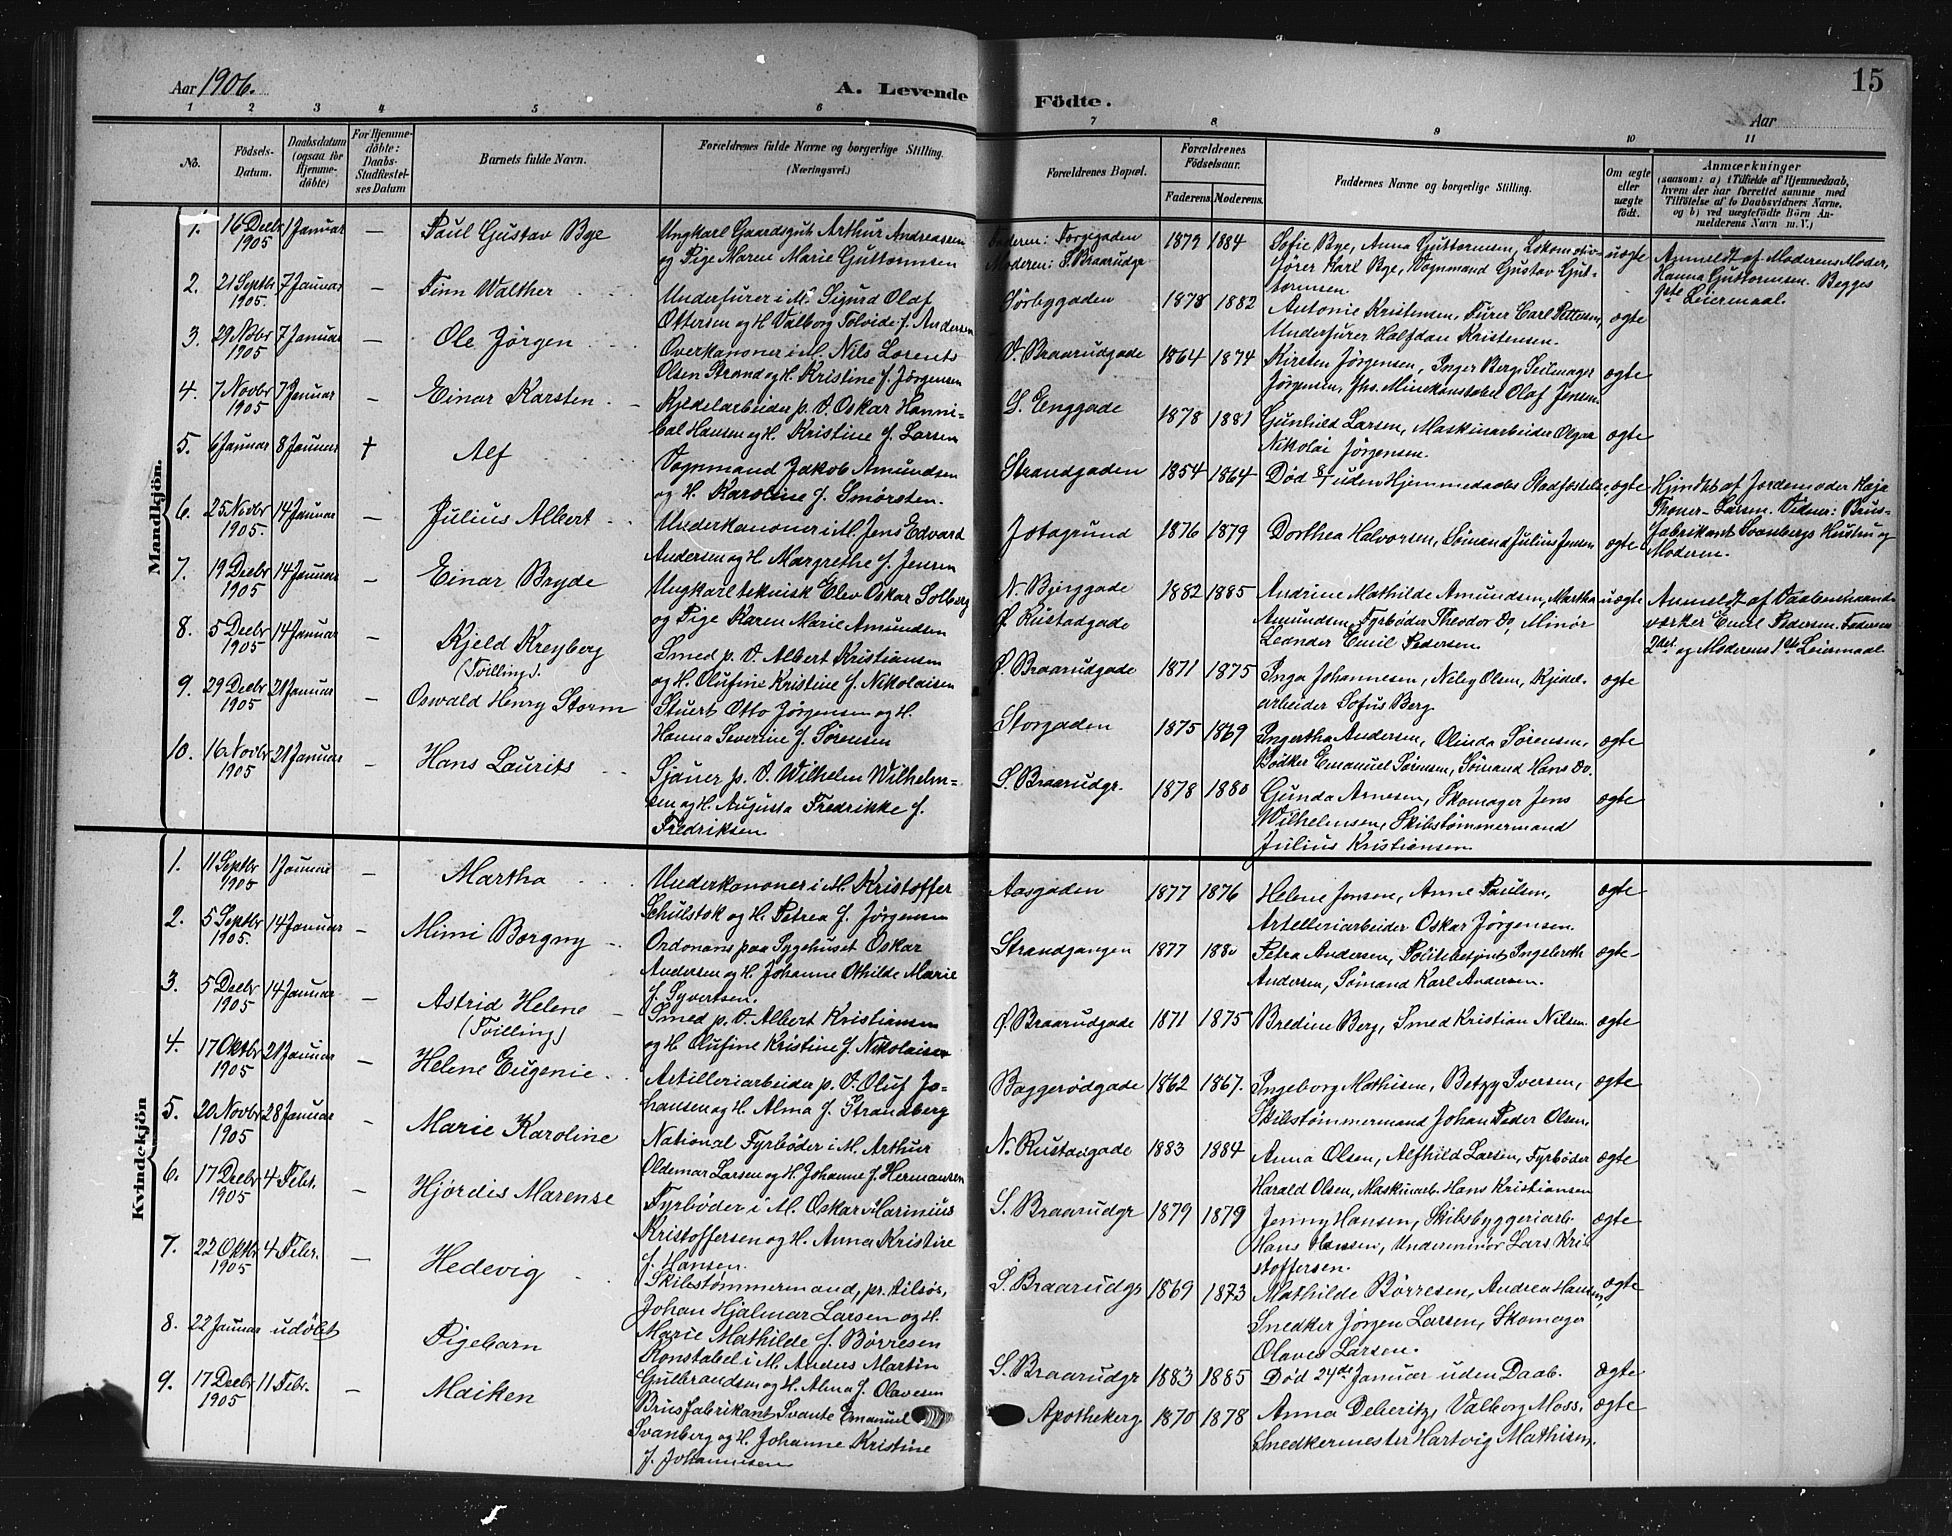 15
Aar 1906.
A. Levende Födte.
Aar
1 2 3 4 5 6 7 8 9 10 11
No.
Födsels-Datum.
Daabsdatum (ogsaa for Hjemmedöbte)
For Hjemmedöbte: Daabs-Stadfæstelses Datum
Barnets fulde Navn.
Forældrenes fulde Navne og borgerlige Stilling. (Næringsvei.)
Forældrenes Bopæl.
Forældrenes Födselsaar.
Faderens. Moderens.
Faddernes Navne og borgerlige Stilling.
Om ægte eller uægte födt.
Anmærkninger (saasom: a) i Tilfælde af Hjemmedaab, hvem der har forrettet samme, med Tilföielse af to Daabsvidners Navne, og b) ved uægtefödte Börn Anmelderens Navn m. V.)
Mandkjön.
1. 16 Decbr 1905 1 Januar — Paul Gustav Bye
Ungkarl Gaardsgut Arthur Andreassen
og Pige Maren Marie Guttormsen
Faderen: Torgigaden
Moderen: S. Braarudgr
1879 1884
Sofie Bye, Anna Guttormsen, Lokomotiv-
fører Karl Bye, Vognmand Gustav Gut-
tormsen
uægte
Anmeldt af Moderens Moder,
Hanna Guttormsen. Begges
1ste Leiermaal.
2. 21 Septbr 1905. 7 Januar — Finn Walther
Underfurer i M. Sigurd Olaf
Ottersen og H. Valborg Tolvide f. Andersen
Sørbygaden 1878 1882
Antonie Kristensen, Furer Carl Pettersen,
Underfurer Halfdan Kristensen.
ægte
3. 29 Novbr 1905 7 Januar — Ole Jörgen
Overkanoner i M. Nils Lorents
Olsen Strand og H. Kristine f. Jørgensen
V. Braarudgade 1864 1874
Kirsten Jørgensen, Inger Berg, Seilmager
Jørgensen, Fhs. Minekonstabel Olaf Jensen.
ægte
4. 7 Novbr 1905 7 Januar — Einar Karsten
Kjedelarbeider p. V. Oskar Hanni-
bal Hansen og H. Kristine f. Larsen
S. Enggade 1878 1881
Gunhild Larsen, Maskinarbeider Olgar
Nikolai Jørgensen.
ægte
5. 6 Januar 8 Januar † Alf
Vognmand Jakob Amundsen
og H. Karoline f. Smørsten.
Strandgaden 1854 1864
Død 8/1 uden Hjemmedaabs Stadfæstelse.
ægte
Hjmdbt af Jordemoder Kaja
Thoner-Larsen. Vidner: Brus-
fabrikant Svanbergs Hustru og
Moderen.
6. 25 Novbr 1905. 14 Januar — Julius Albert
Underkanoner i M. Jens Edvard
Andersen og H. Margrethe f. Jensen
Jotagrund 1876 1879
Dorthea Halvorsen, Sömand Julius Jensen
ægte
7. 19 Decbr 1905 14 Januar — Einar Bryde
Ungkarl teknisk Elev Oskar Solberg
og Pige Karen Marie Amundsen
N. Bjerggade
Ø. Rustadgade
1882 1885
Andrine Mathilde Amundsen, Martha
Amundsen, Fyrbøder Theodor Do, Minör
Leander Emil Pedersen.
uægte
Anmeldt af Vaabenhaand-
værker Emil Pedersen. Faderens
2det og Moderens 1ste Leiermaal.
8. 5 Decbr 1905 14 Januar — Kjeld Kreyberg
(Tvilling).
Smed p. V. Albert Kristiansen
og H. Olufine Kristine f. Nikolaisen
Ø. Braarudgade 1871 1875
Inga Johannesen, Nelly Olsen, Kjedel-
arbeider Sofus Berg.
ægte
9. 29 Decbr 1905 21 Januar — Oswald Henry Storm
Stuert Otto Jørgensen og H.
Hanna Severine f. Sørensen
Storgaden 1875 1869
Ingertha Andersen, Olinda Sørensen,
Bödker Emanuel Sørensen, Sömand Hans Do.
ægte
10. 16 Novbr 1905 21 Januar — Hans Laurits
Sjauer p. V. Wilhelm Wilhelm-
sen og H. Augusta Fredrikke f.
Fredriksen
S. Braarudgr. 1878 1880
Gunda Arnesen, Skomager Jens
Wilhelmsen, Skibstømmermand
Julius Kristiansen.
ægte
Kvindekjön
1. 11 Septbr 1905 1 Januar — Martha
Underkanoner i M. Kristoffer
Schulstok og H. Petrea f. Jørgensen
Aasgaden 1877 1876
Helene Jensen, Anne Paulsen,
Artilleriarbeider Oskar Jørgensen.
ægte
2. 5 Septbr 1905. 14 Januar — Mimi Borgny
Ordonans paa Sygehuset Oskar
Andersen og H. Johanne Othilde Marie
f. Syvertsen.
Strandgangen 1877 1880
Petra Andersen, Politibetjent Ingebreth
Andersen, Sømand Karl Andersen.
ægte
3. 5 Decbr 1905 14 Januar — Astrid Helene
(Tvilling)
Smed p. V. Albert Kristiansen
og H. Olufine Kristine f. Nikolaisen
Ø. Braarudgade 1871 1875
Bredine Berg, Smed Kristian Nilsen
ægte
4. 17 Oktbr 1905 21 Januar — Helene Eugenie
Artilleriarbeider p. V. Oluf Jo-
hansen og H. Alma f. Strandberg
Baggerødgade 1862 1867.
Ingeborg Mathisen, Betzy Iversen,
Skibstømmermand Johan Peder Olsen.
ægte
5. 20 Novbr 1905 28 Januar — Marie Karoline
National Fyrbøder i M. Arthur
Oldemar Larsen og H. Johanne f. Hermansen
N. Rustadgade 1883 1884
Anna Olsen, Alfhild Larsen, Fyrbøder
Harald Olsen, Maskinarb. Hans Kristiansen
ægte
6. 17 Decbr 1905 4 Febr. — Hjørdis Marense
Fyrbøder i M. Oskar Marinius
Kristoffersen og H. Anna Kristine
f. Hansen.
S. Braarudgr 1879 1879
Jenny Hansen, Skibsbyggeriarb.
Hans Hansen, Underminör Lars Kri-
stoffersen.
ægte
7. 22 Oktbr 1905 4 Febr. — Hedevig
Skibstømmermand, pr. tilsøs,
Johan Hjalmar Larsen og H.
Marie Mathilde f. Börresen
S. Braarudgr 1869 1873
Mathilde Børresen, Andrea Hansen,
Snedker Jörgen Larsen, Skomager
Olaves Larsen.
ægte
8. 22 Januar udöbt Pigebarn
Konstabel i M. Anders Martin
Gulbrandsen og H. Alma f. Olavesen
S. Braarudgr 1883 1885
Død 24de Januar uden Daab.
ægte
9. 17 Decbr 1905 11 Febr. — Maiken
Brusfabrikant Svante Emanuel
Svanberg og H. Johanne Kristine
f. Johannesen
Apothekerg 1870 1878
Anna Deberitz, Valborg Moss,
Snedkermester Hartvig Mathisen.
ægte